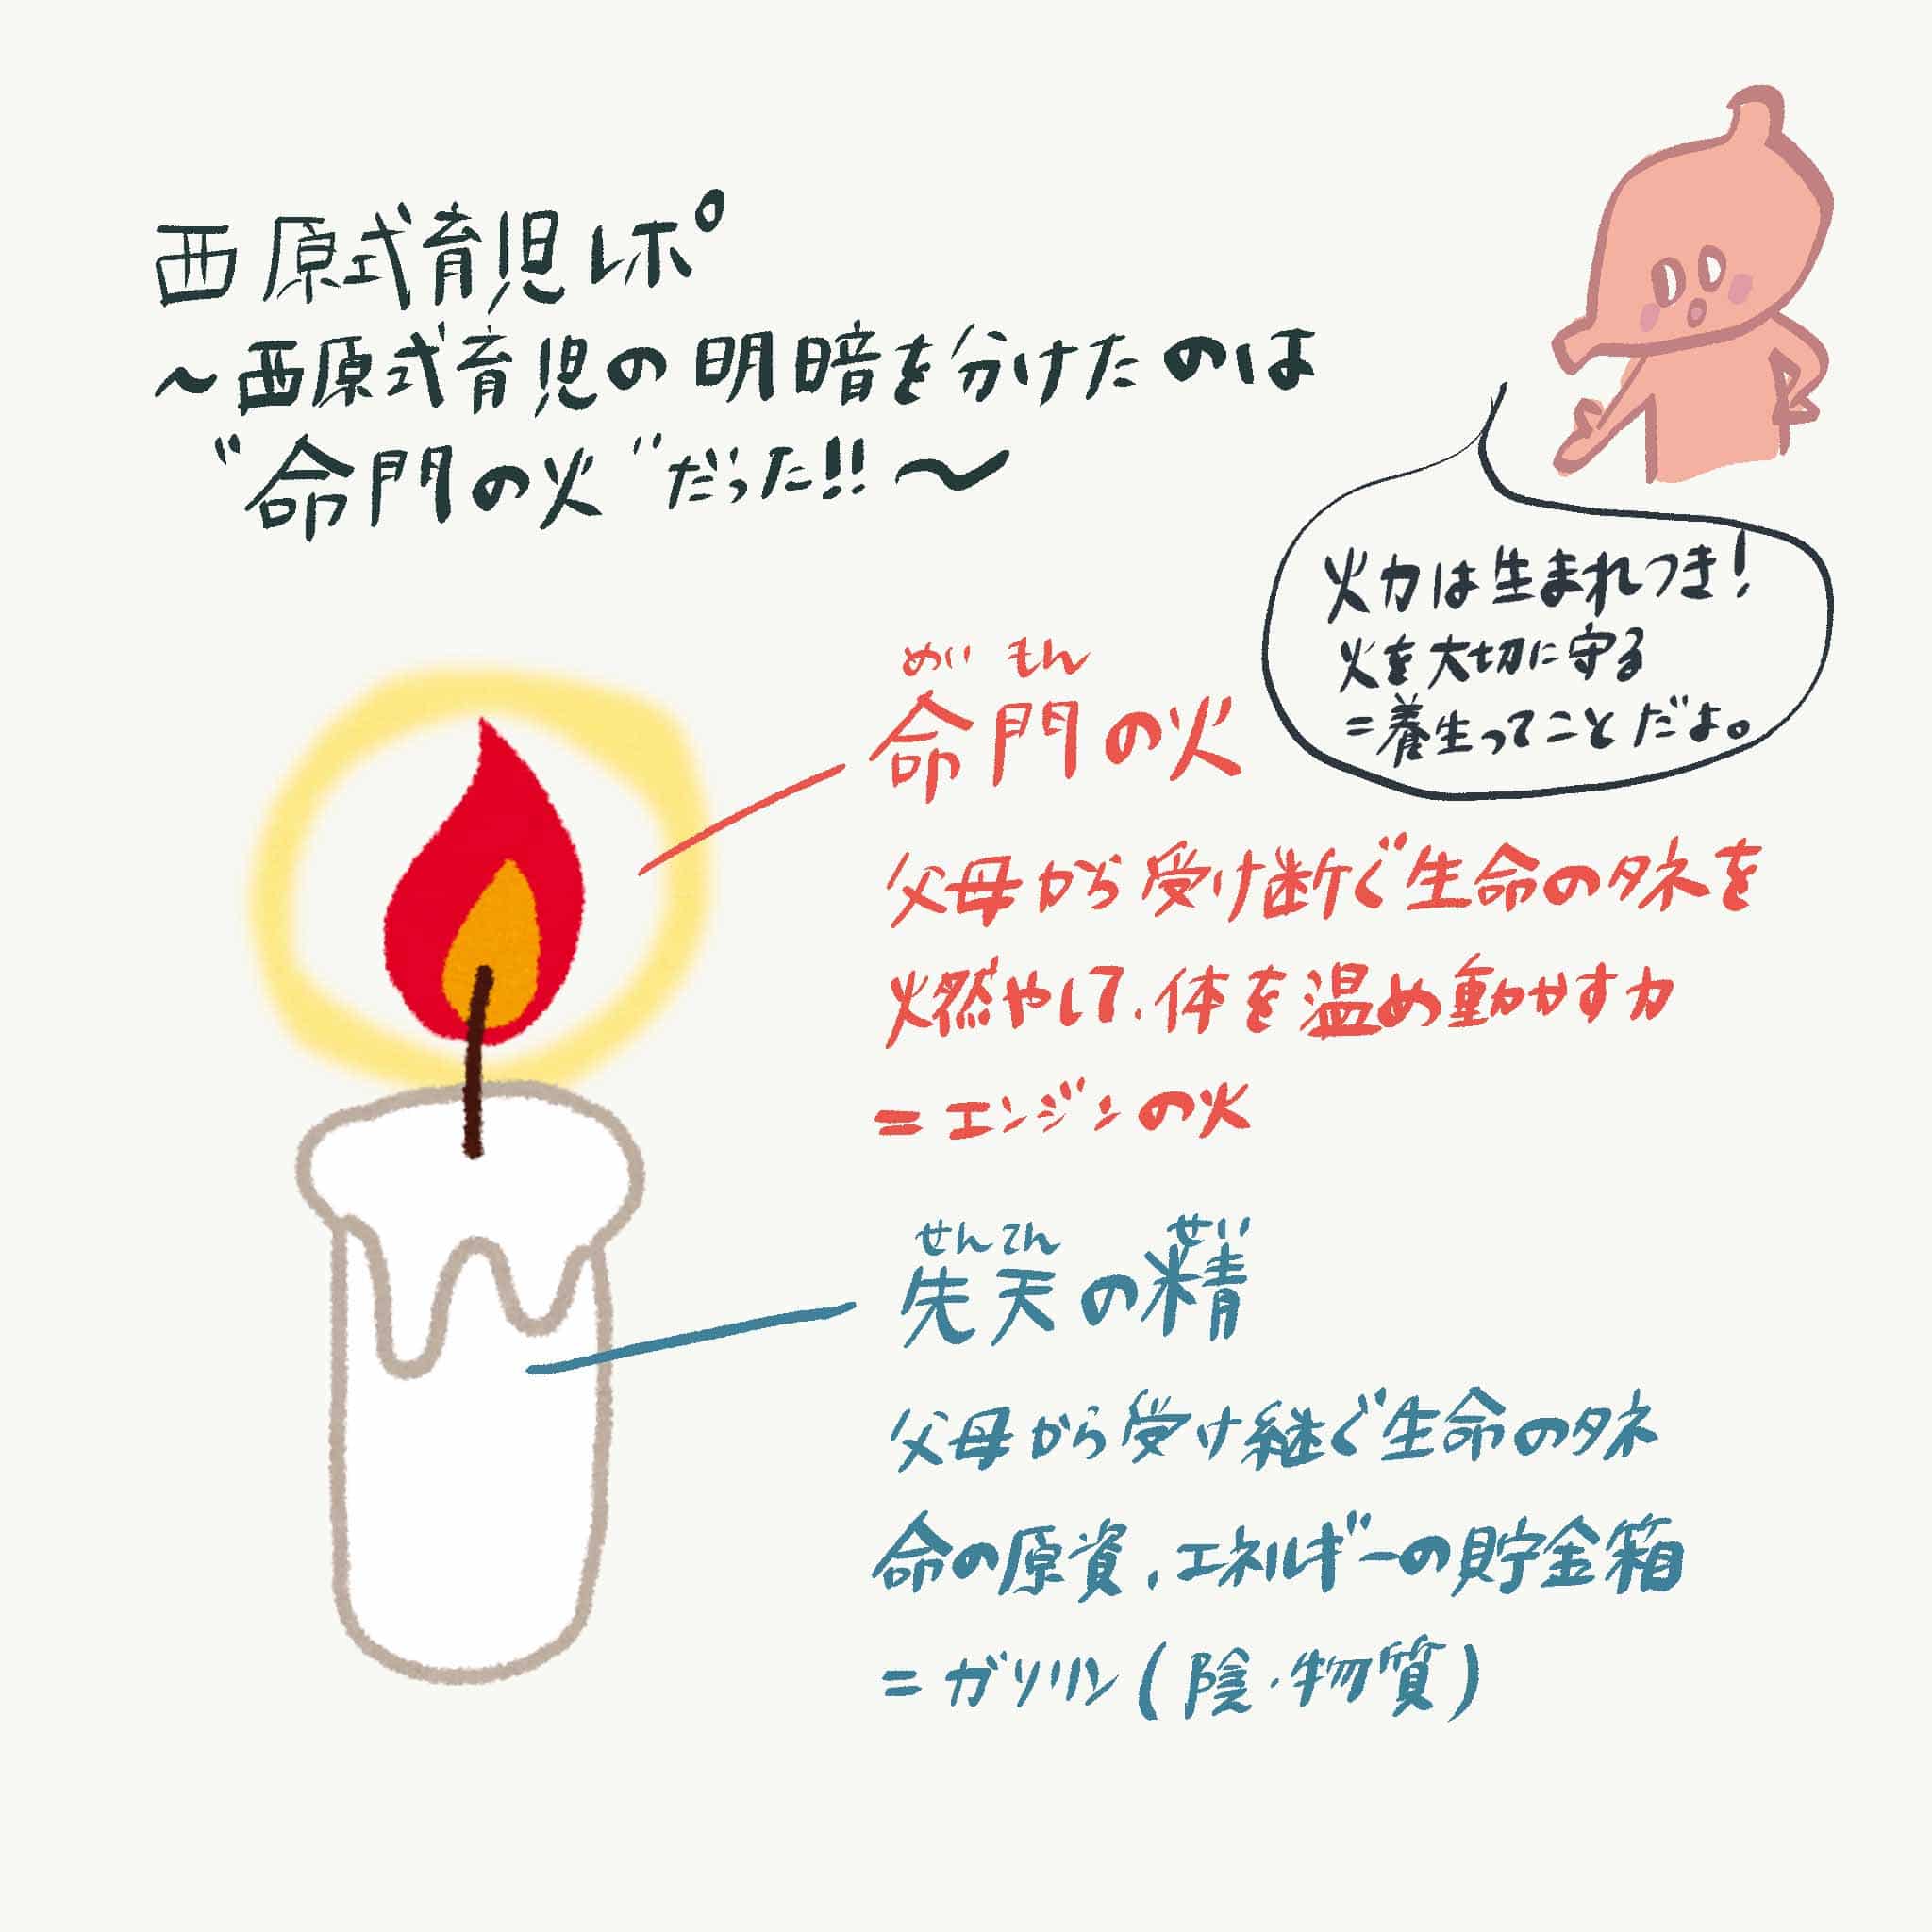 西原式育児レポ
～西原式育児の明暗を分けたのは
“命門の火”だった!!～
火力は生まれつき!
火を大切に守る
=養生ってことだよ。
めいもん
命門の火
父母から受け断ぐ生命のタネを
燃やして、体を温め動かす力
=エンジンの火
せんてん せい
先天の精
父母から受け継ぐ生命のタネ
命の原資、エネルギーの貯金箱
=ガソリン(陰・物質)